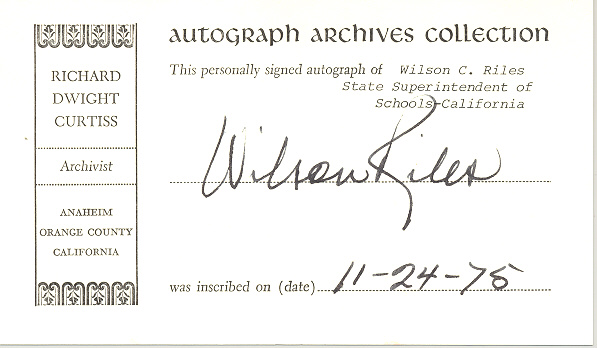 autograph archives collection
RICHARD
DWIGHT
CURTISS
Archivist
ANAHEIM
ORANGE COUNTY
CALIFORNIA
This personally signed autograph of Wilson C. Riles
State Superintendent of
Schools-California
Wilson Riles
was inscribed on (date) 11-24-75